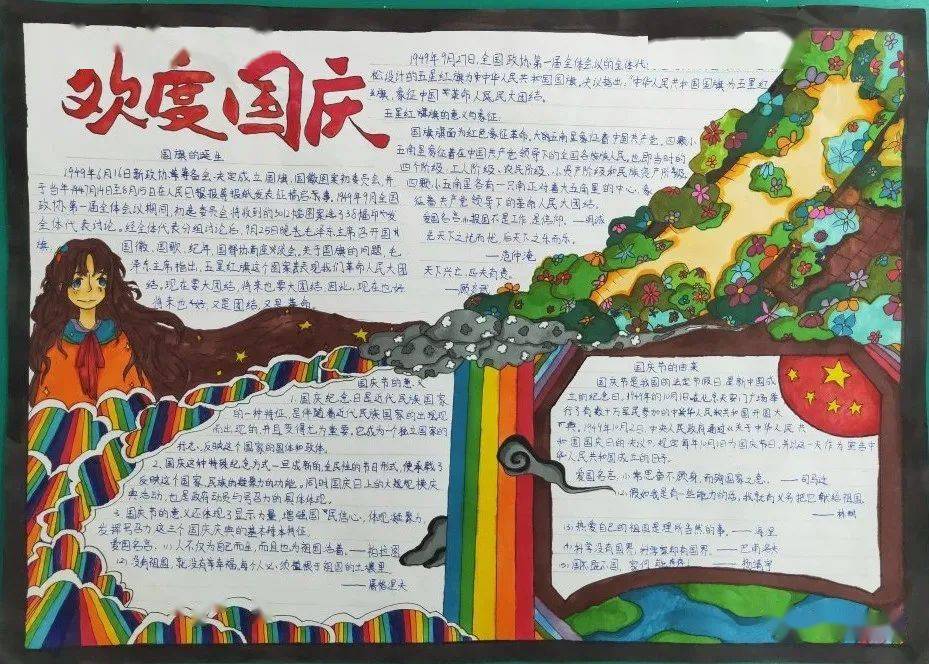 欢度国庆
国旗的诞生
1949年6月16日新政协筹备会决定成立国旗、国徽图案初委员会,并
于当年7月14日至8月15日在人民日报等报纸发表征稿启事,1949年9月全国
政协第一届全体会议期间,初选委员会将收到的3012幅图案选38幅印发
全体代表讨论。经全体代表分组讨论后,9月25日晚毛泽东主席召开国
旗、国徽、国歌、纪年、国都协商座谈会,关于国旗的问题,毛
泽东主席指出,五星红旗这个图案表现我们革命人民大团
结,现在要大团结,将来也要大团结,因此,现在也好
将来也好,又是团结,又是革命
1949年9月27日,全国政协第一届全体会议的全体代
松设计的五星红旗为中华人民共和国国旗,决议指出:中华人民共和国国旗为五星红
旗,象征中国革命人民大团结。
五星红旗旗的意义与象征:
国旗旗面为红色象征革命,大的五角星象征着中国共产党,四颗小
五角星象征着在中国共产党领导下的全国各族人民,也即当时的
四个阶级,工人阶级、农民阶级、小资产阶级和民族资产阶级
四颗小五角星各有一只角正对着大五角星的中心,象
征着共产党领导下的革命人民大团结。
爱国名言:报国不是工作是信仰。
先天下之忧而忧,后天下之乐而乐。
——范仲淹
天下兴亡,匹夫有责。
——顾炎武
国庆节的意义
1.国庆纪念日是近代民族国家
的一种特征,是伴随着近代民族国家的出现现
而出现的,并且变得尤为重要。它成为一个独立国家的
标志,反映这个国家的国体和政体。
2.国庆这种特殊纪念方式一旦成新的全民性的节日形式,便承载了
反映这个国家、民族的凝聚力的功能。同时国庆日上的大规模庆
典活动,也是政府动员与号召力的具体体现。
3.国庆节的意义还体现了显示力量、增强国民信心,体现凝聚力,
发挥号召力这三个国庆庆典的基本特征。
爱国名言:(1)人不仅为自己而生,而且也为祖国活着。——柏拉图
(2)没有祖国,就没有幸福,每个人必须植根于祖国的土壤里
——屠格涅夫
国庆节的由来
国庆节是我国的法定节假日,是新中国成
立的纪念日,1949年的10月1日在北京天安门广场举
行了有数十万军民参加的中华人民共和国开国大
典。1949年10月2日,中央人民政府通过《关于中华人民共
和国国庆日的决议》,规定每年10月1日为国庆节日,并以这一天作为宣告中
华人民共和国成立的日子。
爱国名言:(1)常思奋不顾身,而殉国家之急。——司马迁
(2)假如我是有一些能力的话,我就有义务把它献给祖国。
——林耐
(3)热爱自己的祖国是理所当然的事。——海涅
(4)科学没有国界,科学家却有国界。——巴甫洛夫
(5)国既不国,家何能存